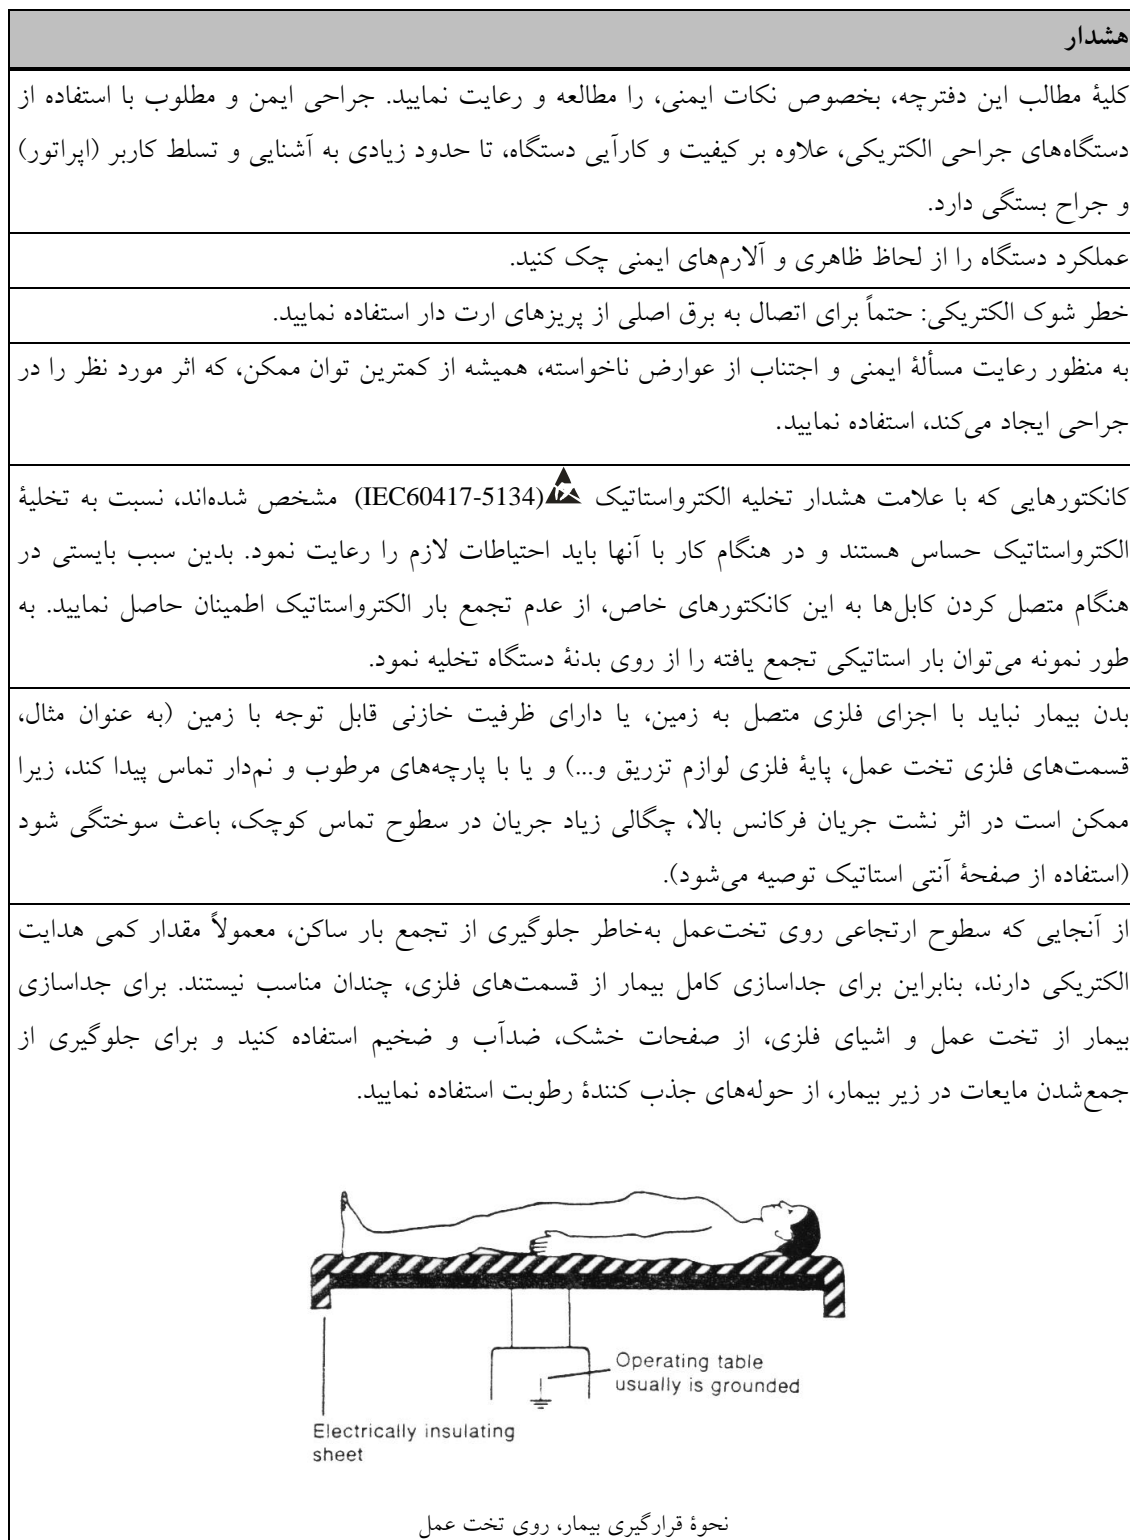 هشدار
کلیهٔ مطالب این دفترچه، بخصوص نکات ایمنی، را مطالعه و رعایت نمایید. جراحی ایمن و مطلوب با استفاده از
دستگاه‌های جراحی الکتریکی، علاوه بر کیفیت و کارآیی دستگاه، تا حدود زیادی به آشنایی و تسلط کاربر (اپراتور)
و جراح بستگی دارد.
عملکرد دستگاه را از لحاظ ظاهری و آلارم‌های ایمنی چک کنید.
خطر شوک الکتریکی: حتماً برای اتصال به برق اصلی از پریزهای ارت دار استفاده نمایید.
به منظور رعایت مسألهٔ ایمنی و اجتناب از عوارض ناخواسته، همیشه از کمترین توان ممکن، که اثر مورد نظر را در
جراحی ایجاد می‌کند، استفاده نمایید.
کانکتورهایی که با علامت هشدار تخلیه الکترواستاتیک (IEC60417-5134) مشخص شده‌اند، نسبت به تخلیهٔ
الکترواستاتیک حساس هستند و در هنگام کار با آنها باید احتیاطات لازم را رعایت نمود. بدین سبب بایستی در
هنگام متصل کردن کابل‌ها به این کانکتورهای خاص، از عدم تجمع بار الکترواستاتیک اطمینان حاصل نمایید. به
طور نمونه می‌توان بار استاتیکی تجمع یافته را از روی بدنهٔ دستگاه تخلیه نمود.
بدن بیمار نباید با اجزای فلزی متصل به زمین، یا دارای ظرفیت خازنی قابل توجه با زمین (به عنوان مثال،
قسمت‌های فلزی تخت عمل، پایهٔ فلزی لوازم تزریق و...) و یا با پارچه‌های مرطوب و نم‌دار تماس پیدا کند، زیرا
ممکن است در اثر نشت جریان فرکانس بالا، چگالی زیاد جریان در سطوح تماس کوچک، باعث سوختگی شود
(استفاده از صفحهٔ آنتی استاتیک توصیه می‌شود).
از آنجایی که سطوح ارتجاعی روی تخت‌عمل به‌خاطر جلوگیری از تجمع بار ساکن، معمولاً مقدار کمی هدایت
الکتریکی دارند، بنابراین برای جداسازی کامل بیمار از قسمت‌های فلزی، چندان مناسب نیستند. برای جداسازی
بیمار از تخت عمل و اشیای فلزی، از صفحات خشک، ضدآب و ضخیم استفاده کنید و برای جلوگیری از
جمع‌شدن مایعات در زیر بیمار، از حوله‌های جذب کنندهٔ رطوبت استفاده نمایید.
Operating table
usually is grounded
Electrically insulating
sheet
نحوهٔ قرارگیری بیمار، روی تخت عمل